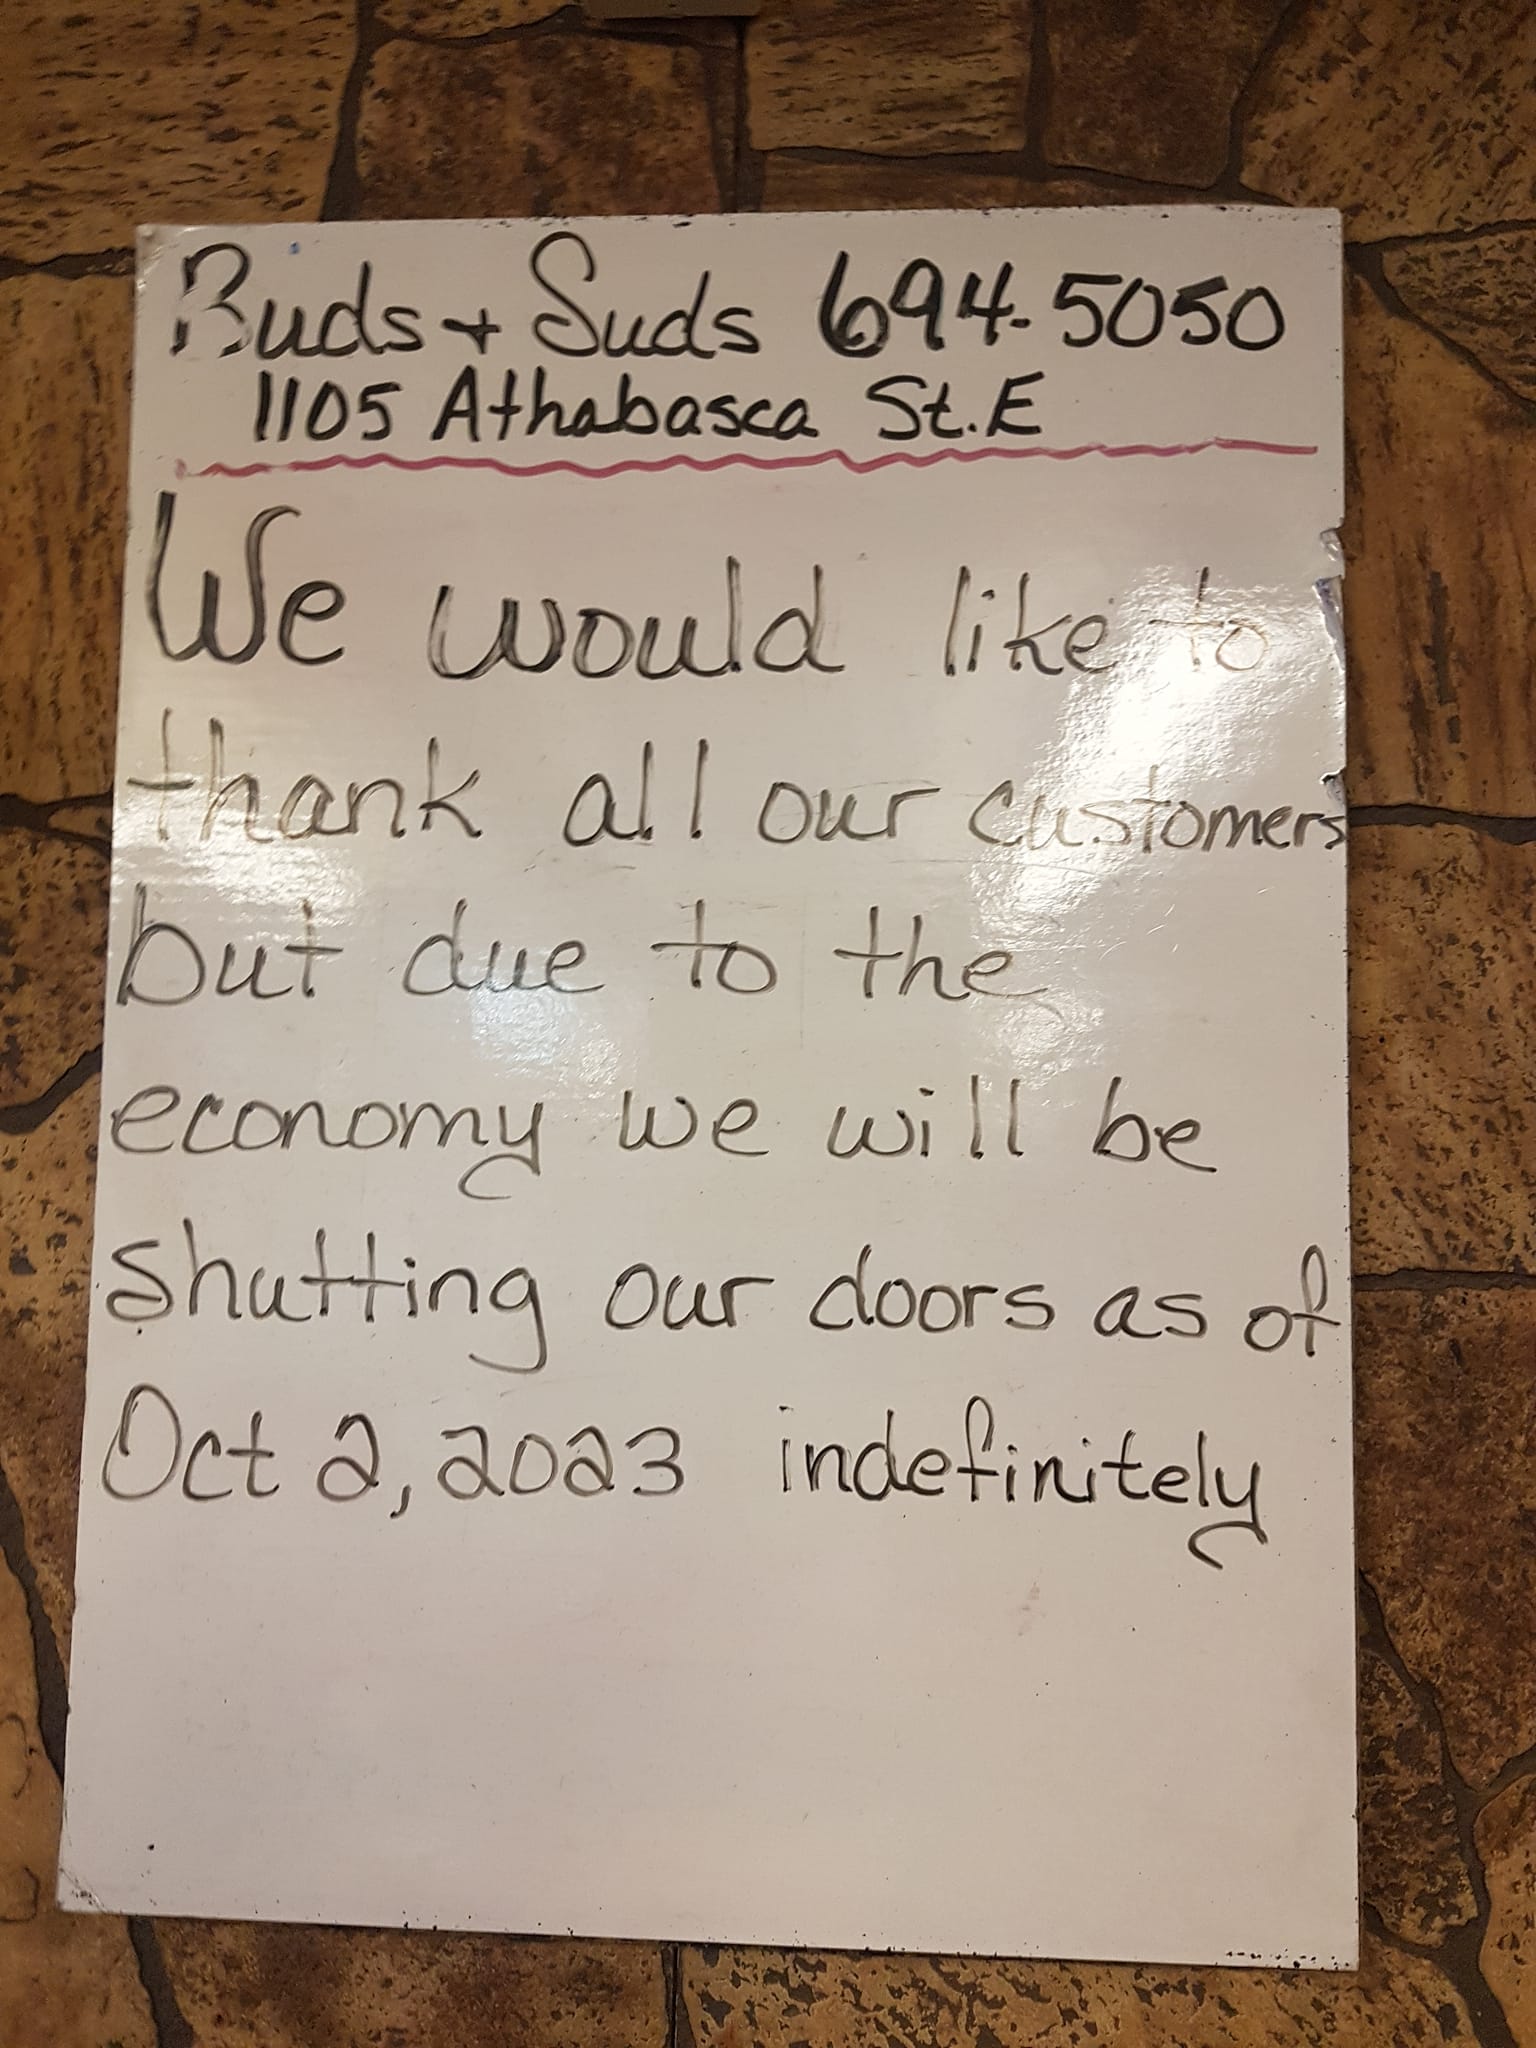 Buds + Suds 694-5050
1105 Athabasca St. E
We would like to
thank all our customers
but due to the
economy we will be
shutting our doors as of
Oct 2, 2023 indefinitely